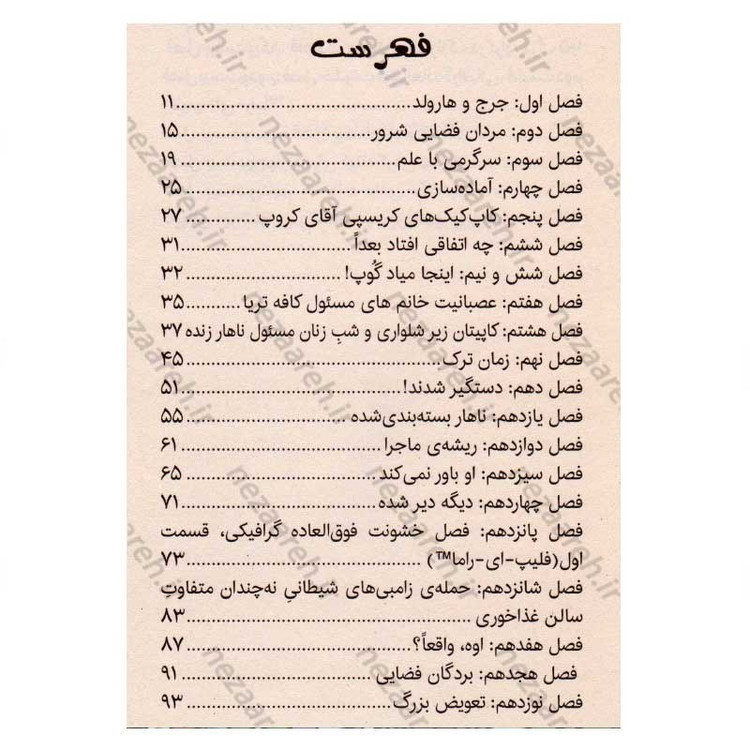 فهرست
فصل اول: جرج و هارولد........................................۱۱
فصل دوم: مردان فضایی شرور................................۱۵
فصل سوم: سرگرمی با علم....................................۱۹
فصل چهارم: آماده‌سازی.......................................۲۵
فصل پنجم: کاپ‌کیک‌های کریسپی آقای کروپ.............۲۷
فصل ششم: چه اتفاقی افتاد بعداً..............................۳۱
فصل شش و نیم: اینجا میاد گُوپ!............................۳۲
فصل هفتم: عصبانیت خانم های مسئول کافه تریا..........۳۵
فصل هشتم: کاپیتان زیر شلواری و شبِ زنان مسئول ناهار زنده ۳۷
فصل نهم: زمان ترک..........................................۴۵
فصل دهم: دستگیر شدند!.....................................۵۱
فصل یازدهم: ناهار بسته‌بندی‌شده............................۵۵
فصل دوازدهم: ریشه‌ی ماجرا.................................۶۱
فصل سیزدهم: او باور نمی‌کند................................۶۵
فصل چهاردهم: دیگه دیر شده................................۷۱
فصل پانزدهم: فصل خشونت فوق‌العاده گرافیکی، قسمت
اول(فلیپ-ای-راما™)........................................۷۳
فصل شانزدهم: حمله‌ی زامبی‌های شیطانیِ نه‌چندان متفاوتِ
سالن غذاخوری................................................۸۳
فصل هفدهم: اوه، واقعاً؟......................................۸۷
فصل هجدهم: بردگان فضایی.................................۹۱
فصل نوزدهم: تعویض بزرگ..................................۹۳
nezaareh.ir